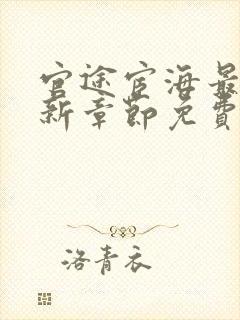 官途宦海最
新章節免費
洛青衣